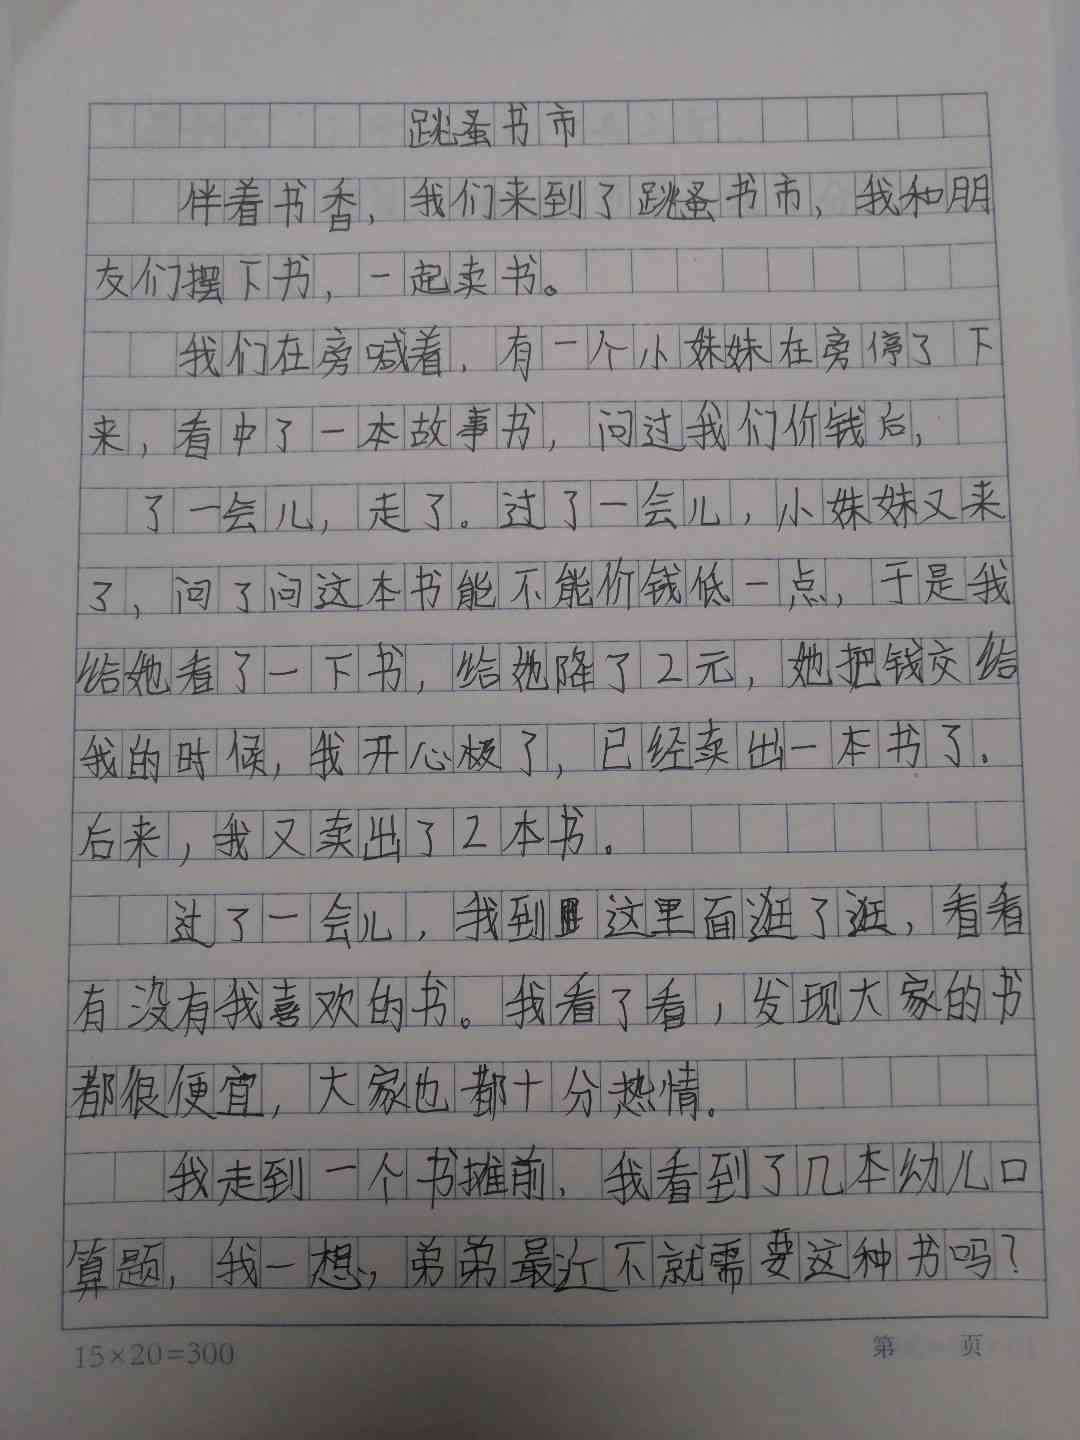 跳蚤书市
伴着书香，我们来到了跳蚤书市，我和朋
友们摆下书，一起卖书。
我们在旁喊着，有一个小妹妹在旁停了下
来，看中了一本故事书，问过我们价钱后，
了一会儿，走了。过了一会儿，小妹妹又来
了，问了问这本书能不能价钱低一点，于是我
给她看了一下书，给她降了2元，她把钱交给
我的时候，我开心极了，已经卖出一本书了。
后来，我又卖出了2本书。
过了一会儿，我到这里面逛了逛，看看
有没有我喜欢的书。我看了看，发现大家的书
都很便宜，大家也都十分热情。
我走到一个书摊前，我看到了几本幼儿口
算题，我一想，弟弟最近不就需要这种书吗？
15×20=300
第 页